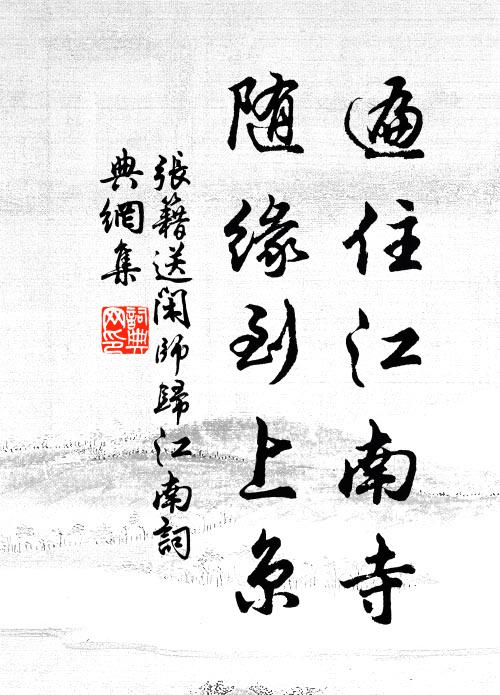 遍住江南寺
随缘到上京
張籍送閑師歸江南詞
典網集
詞典网印